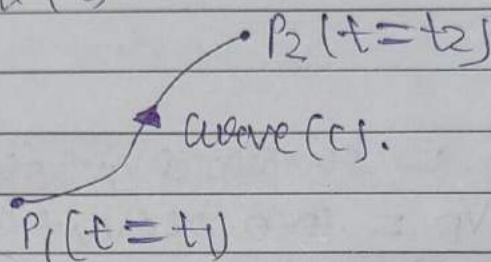 P2 (t=t2)
curve (c).
P1 (t=t1)